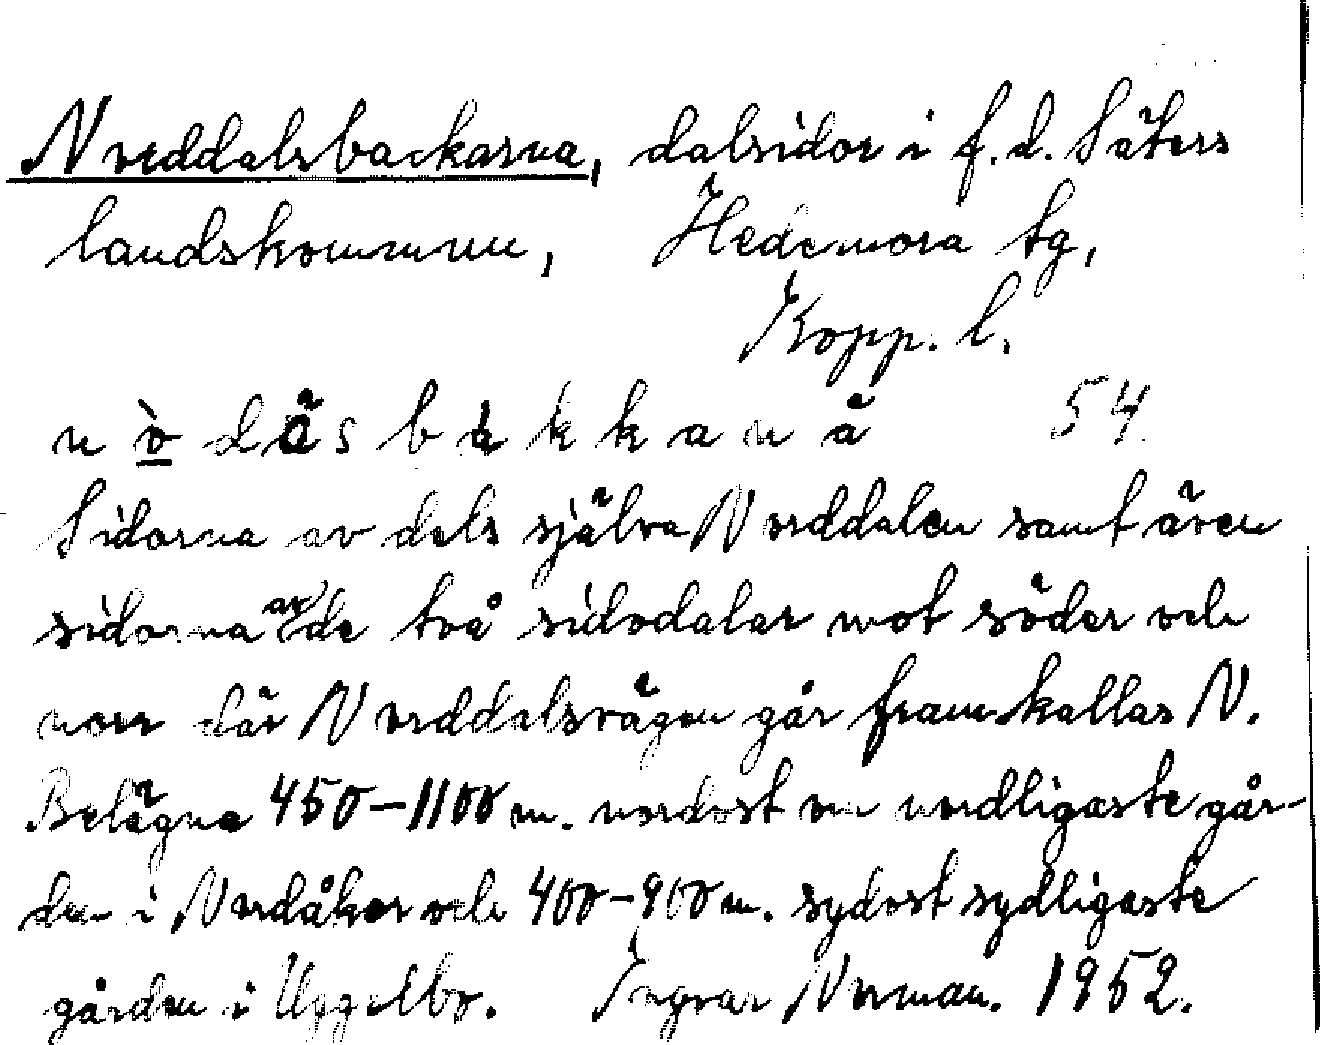 Norddalsbackarna, dalsidor i f.d. Säters
landskommun, Hedemora tg,
Kopp. l.
n ò d å̀ s b a k k a n ä 54
Sidorna av dels själva Norddalen samt även
sidorna av de två sidodalar mot söder och
norr där Norddalsvägen går fram kallas N.
Belägna 450–1100 m. nordost om nordligaste går-
den i Nordåker och 400–900 m. sydost sydligaste
gården i Uggelbo. Ingvar Norman. 1952.